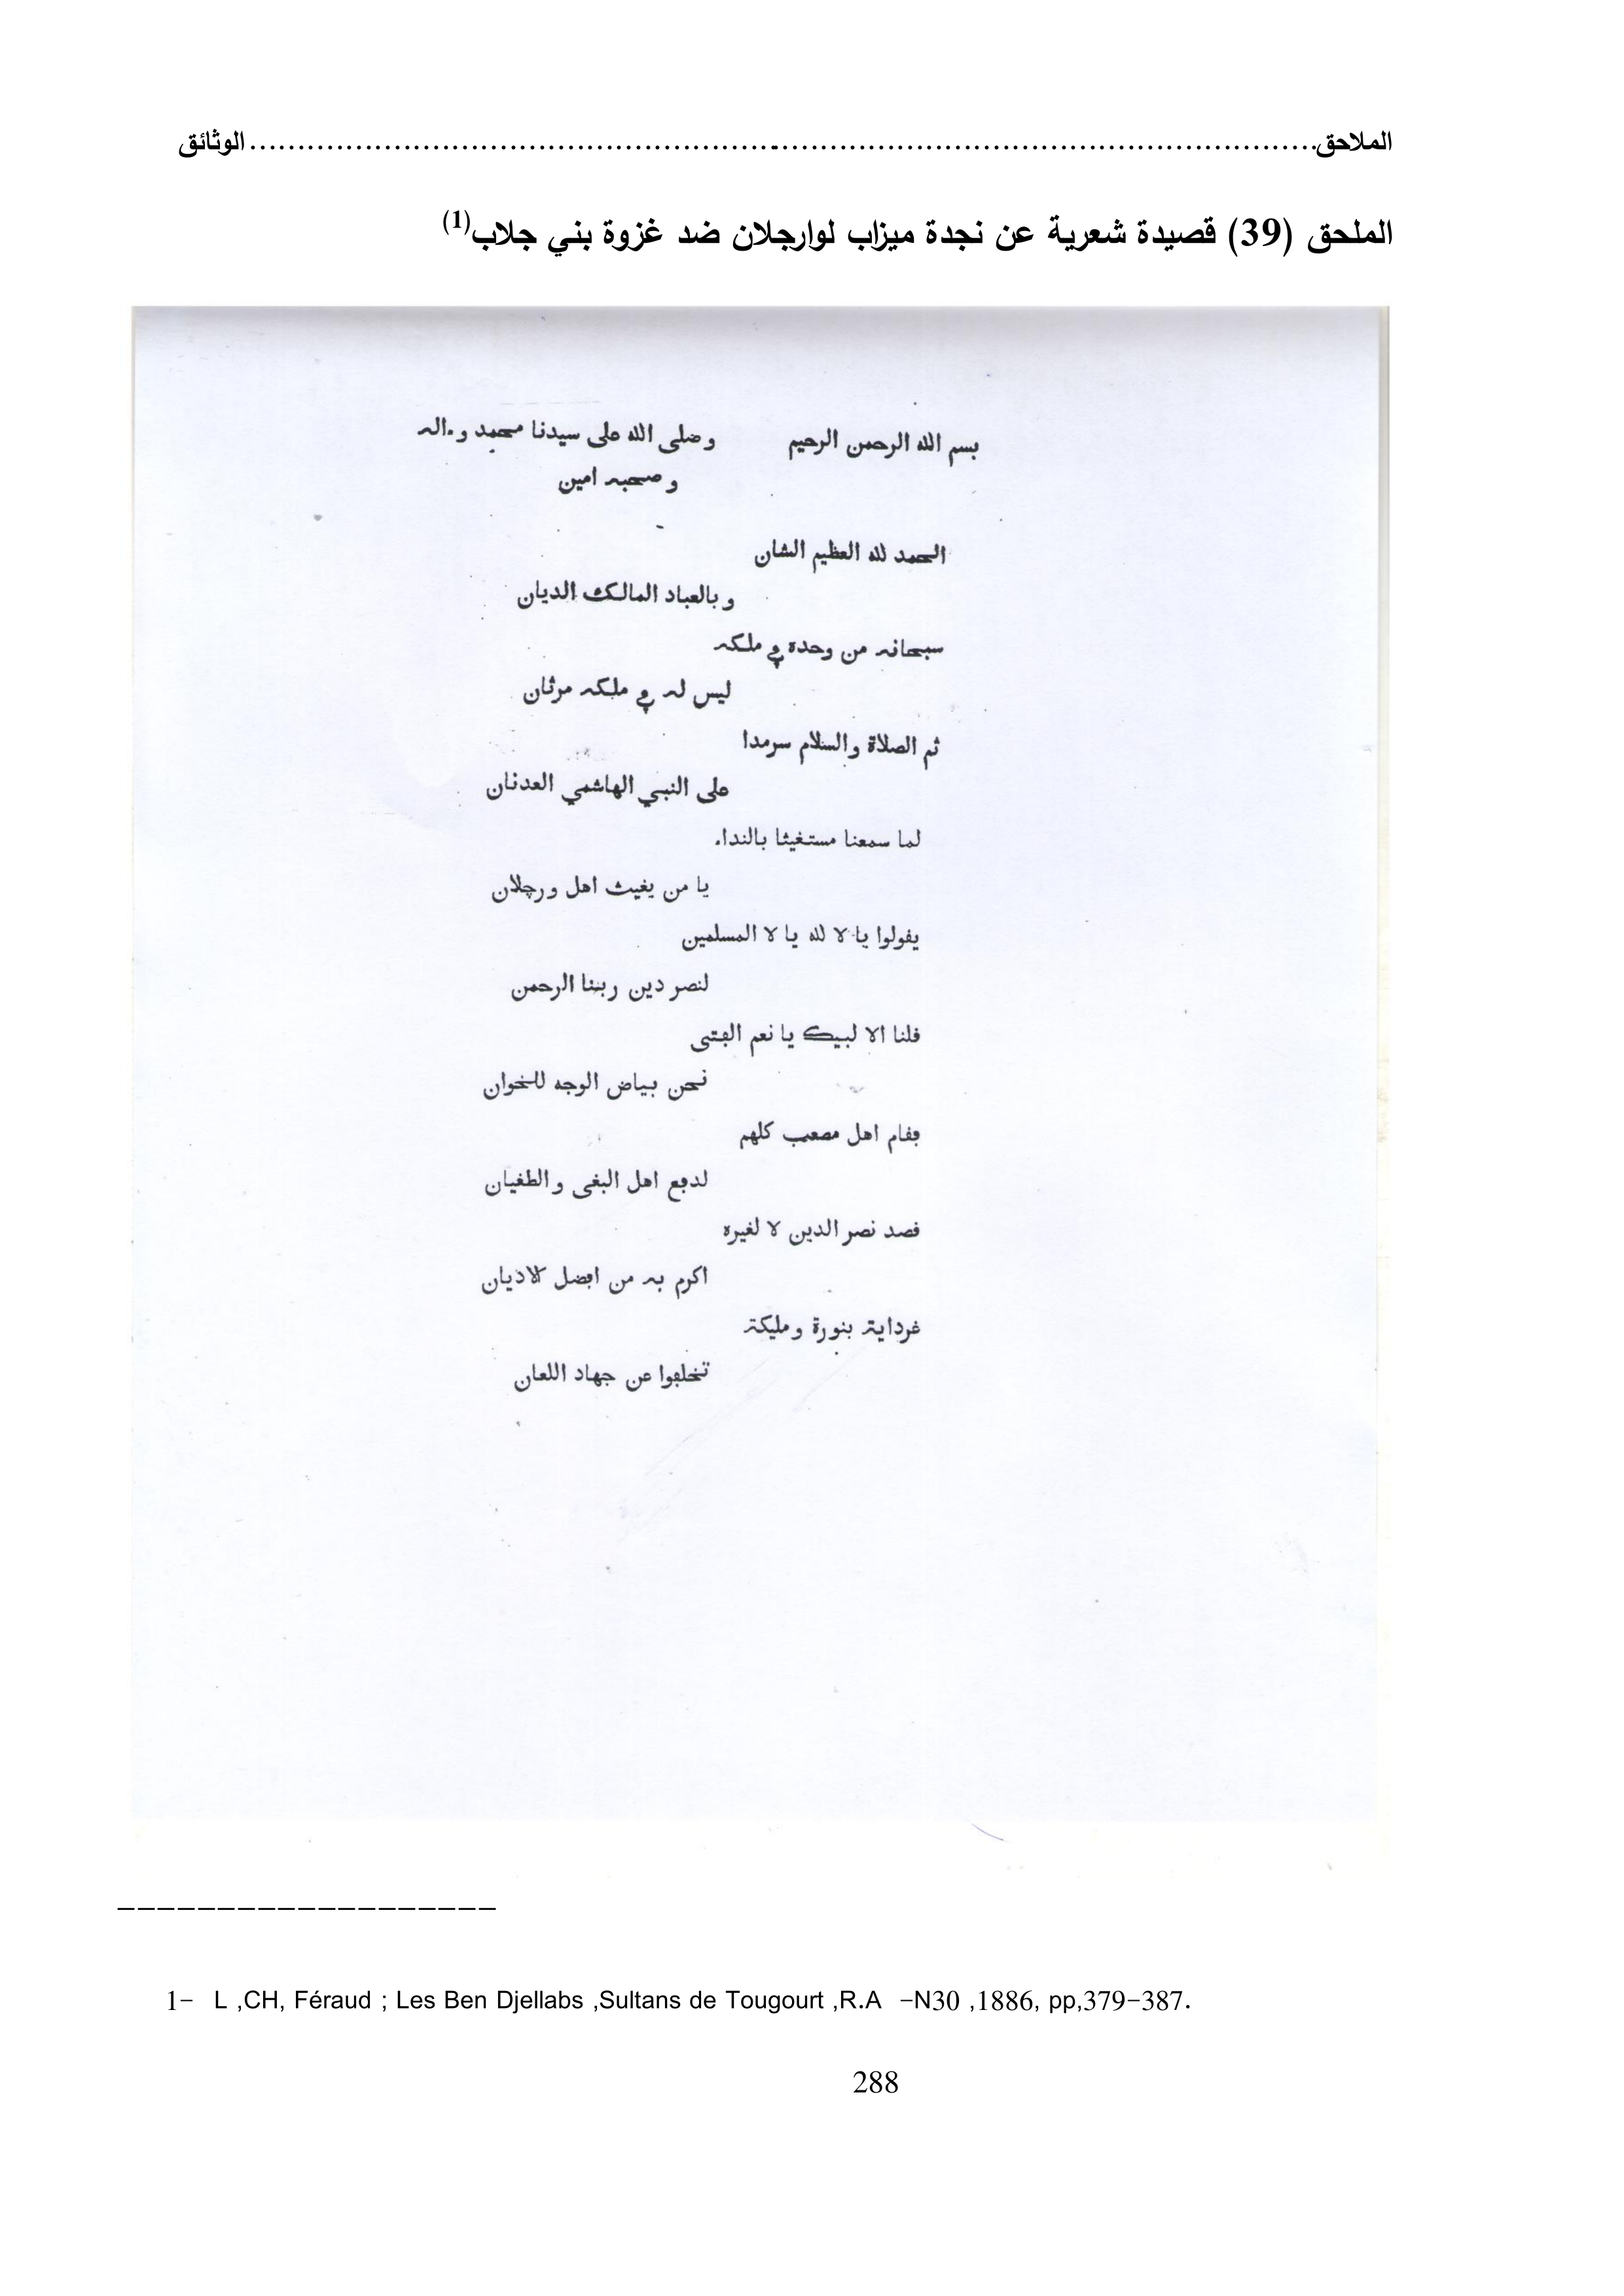 الملاحق..........................................................................................................الوثائق
الملحق (39) قصيدة شعرية عن نجدة ميزاب لوارجلان ضد غزوة بني جلاب(1)
بسم الله الرحمن الرحيم وصلى الله على سيدنا محمد وءاله
وصحبه امين
الحمد لله العظيم الشان
وبالعباد المالك الديان
سبحانه من وحده ڢي ملكه
ليس له ڢي ملكه مرثان
ثم الصلاة والسلام سرمدا
على النبي الهاشمي العدنان
لما سمعنا مستغيثا بالنداء
يا من يغيث اهل ورجلان
يفولوا يا لا لله يا لا المسلمين
لنصر دين ربنا الرحمن
فلنا الا لبيك يا نعم الڢتى
نحن بياض الوجه للخوان
ڢفام اهل مصعب كلهم
لدڢع اهل البغى والطغيان
فصد نصر الدين لا لغيره
اكرم به من اڢضل الاديان
غرداية بنورة ومليكة
تخلڢوا عن جهاد اللعان
1- L ,CH, Féraud ; Les Ben Djellabs ,Sultans de Tougourt ,R.A -N30 ,1886, pp,379-387.
288